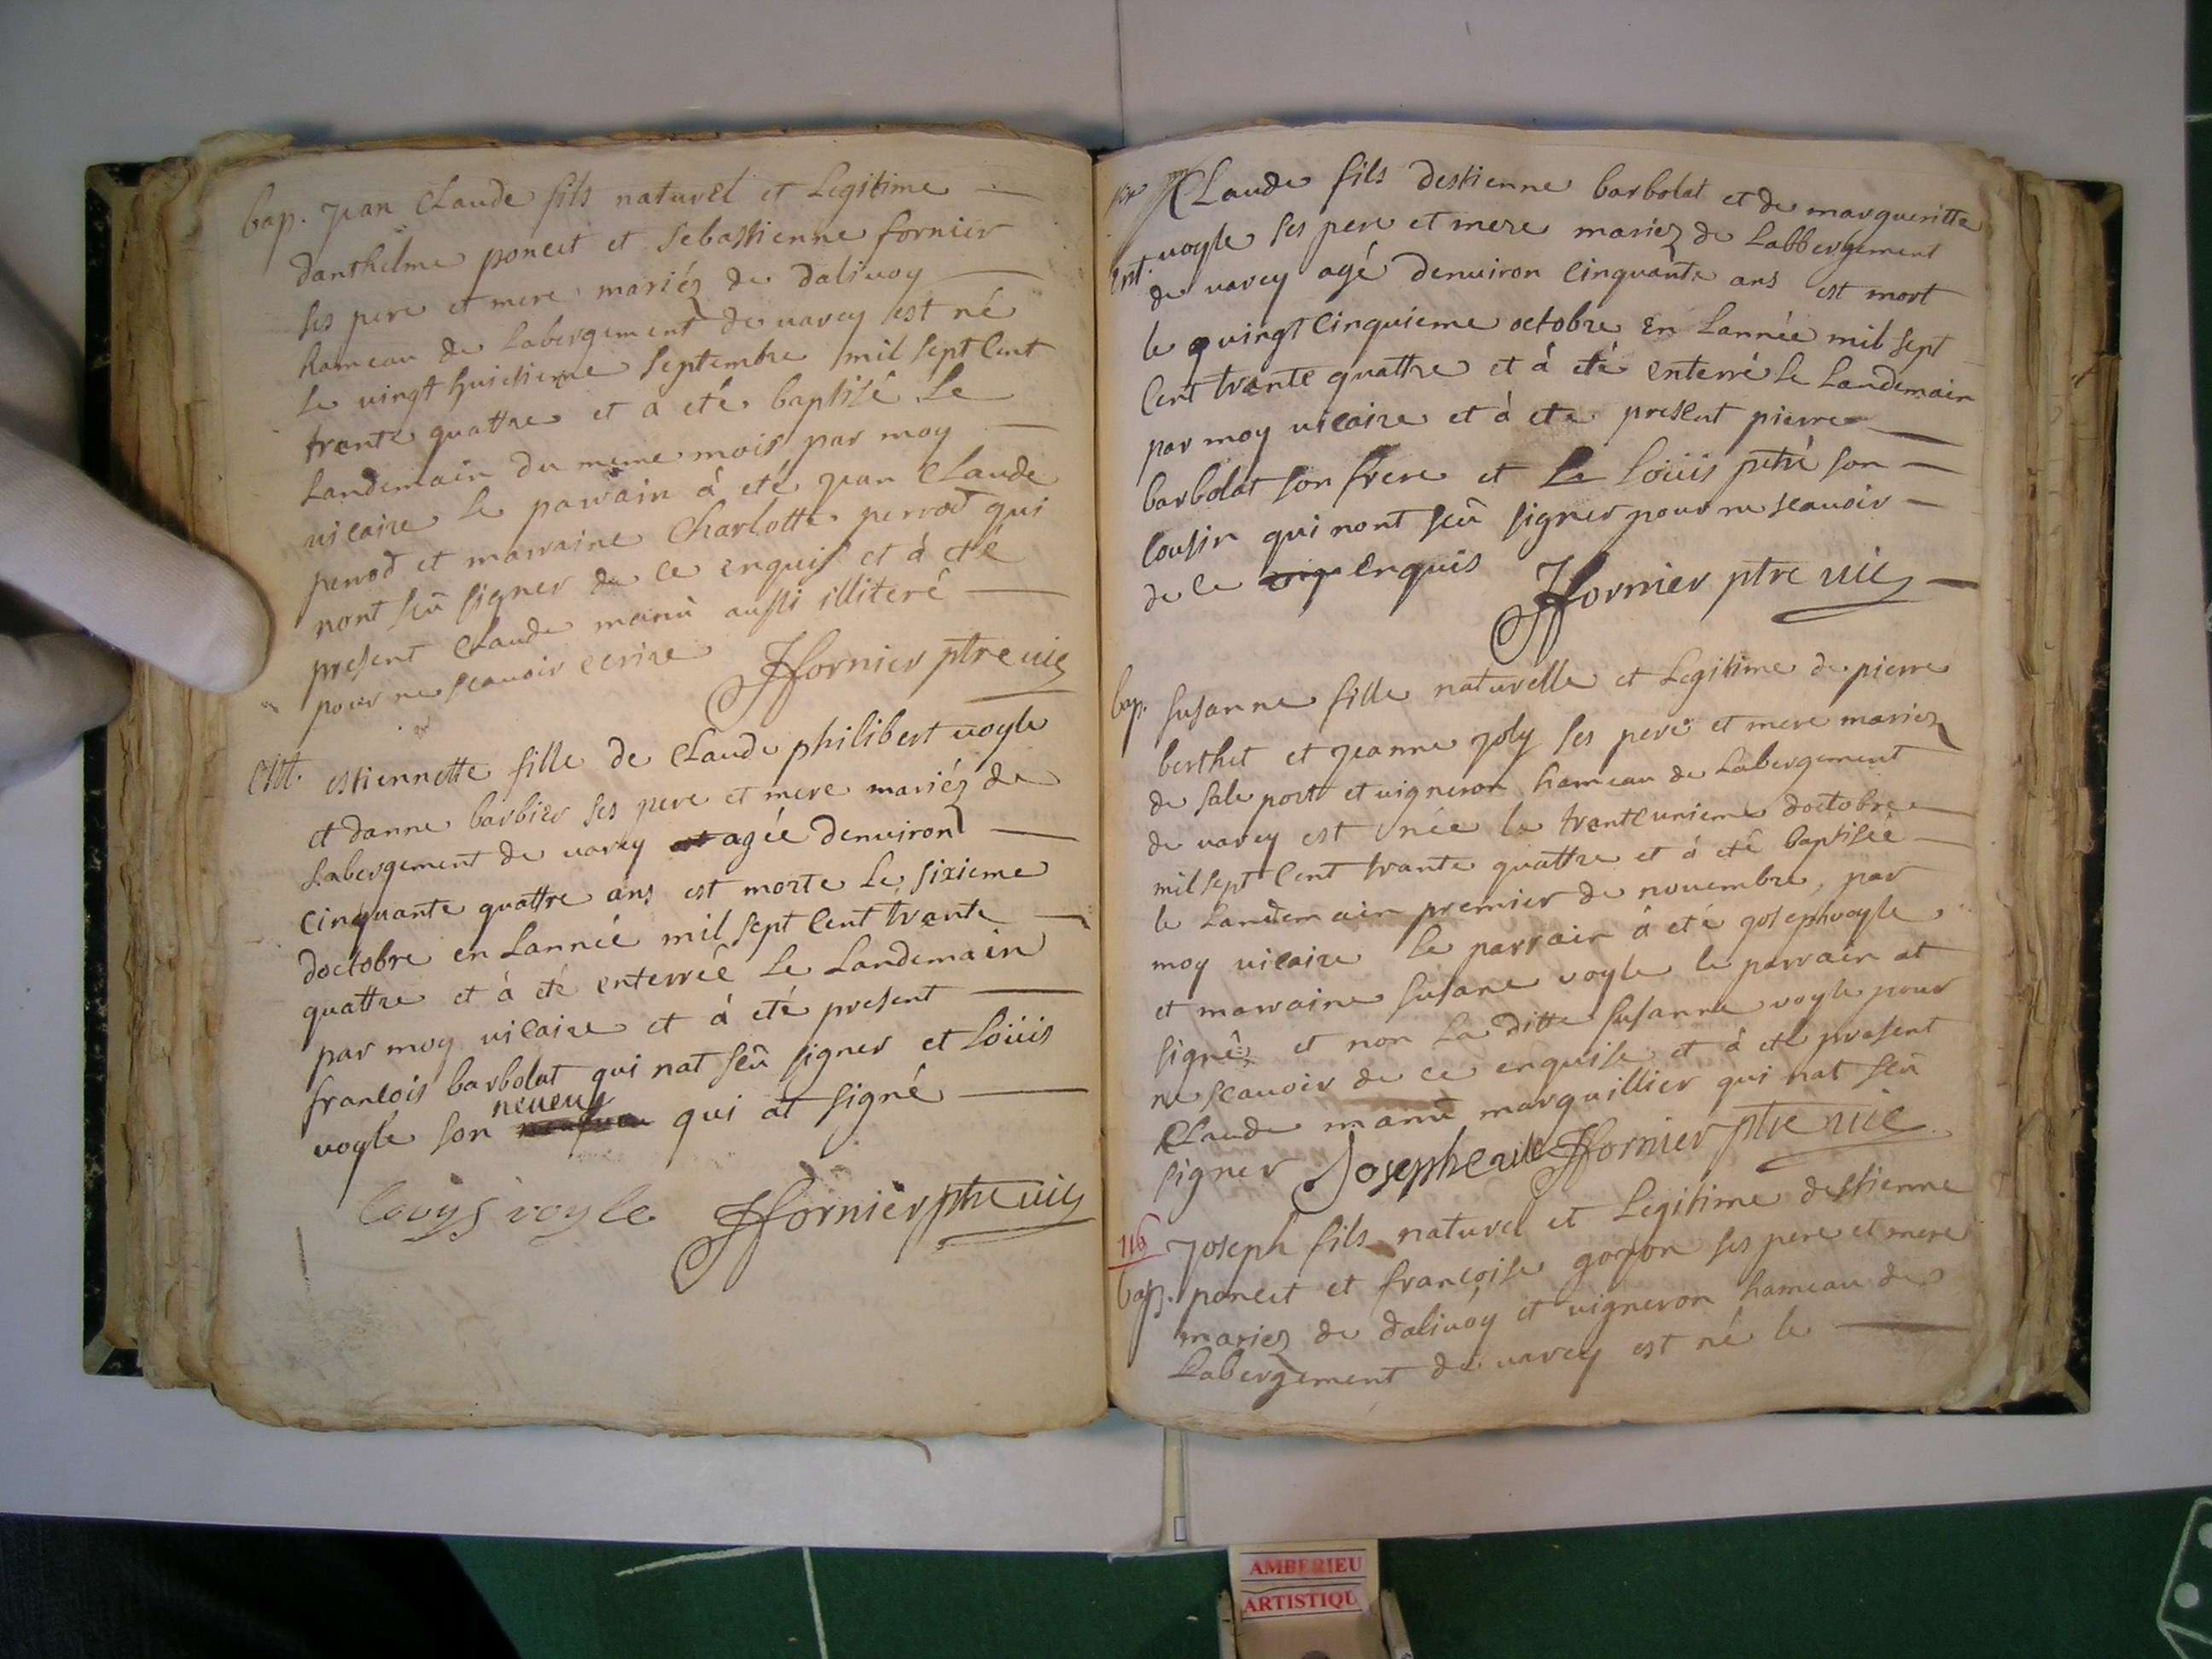 bap. jean Claude fils naturel et Legitime
danthelme poncet et Sebastienne fornier
ses pere et mere mariéz de dalivoy
hameau de Labergement de varey est né
le vingt huictieme septembre mil sept cent
trante quattre et a eté baptisé Le
Landemain du meme mois par moy
vicaire Le parrain à eté jean Claude
perrod et marraine Charlotte perrod qui
nont sçû signer de ce enquis et à eté
present Claude manû aussi illiteré
pour ne scauoir ecrire Jfornier ptre vic
ent. estiennette fille de Claude philibert voyle
et danne barbier ses pere et mere mariéz de
Labergement de varey et agée denuiron
cinquante quattre ans est morte Le sixieme
doctobre en Lanneé mil sept cent trante
quattre et à eté enterréé Le Landemain
par moy vicaire et à eté present
francois barbolat qui nat sçû signer et Loüis
neueu
voyle son qui at signé
lovys voyle Jfornier ptre vic
Claude fils destienne barbolat et de margueritte
ent. voyle ses pere et mere mariez de Labbergement
de varey agé denuiron cinquante ans est mort
le vingt cinquieme octobre en Lannée mil sept
cent trante quattre et à eté enterré Le Landemain
par moy vicaire et à eté present pierre
barbolat son frere et Le Loüis petré son
cousin qui nont sçû signer pour ne scauoir
de ce enquis Jfornier ptre vic
bap. susanne fille naturelle et Legitime de pierre
berthet et jeanne joly ses pere et mere mariez
de sale porte et vigneron hameau de Labergement
de varey est née le trante unieme doctobre
mil sept cent trante quattre et à eté baptisée
le Landemain premier de nouembre, par
moy vicaire le parrain à eté joseph voyle
et marraine susane voyle le parrain at
signé et non La ditte susanne voyle pour
ne scauoir de ce enquise et à eté present
Claude manû marguillier qui nat sçû
signer Joseph voile Jfornier ptre vic
116 joseph fils naturel et Legitime destienne
bap. poncet et françoise goyon ses pere et mere
mariez de dalivoy et vigneron hameau de
Labergement de varey est né le
AMBERIEU
ARTISTIQU